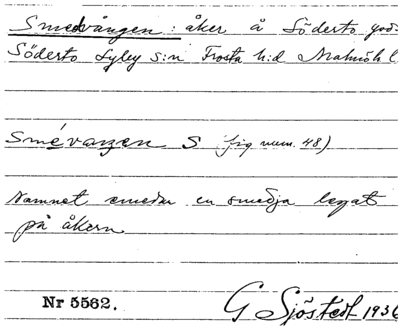 Smedvången: åker å Söderto god-
Söderto Lyby s:n Frosta h:d Malmöh l.
Smévaŋen S (fig num. 48)
Namnet emedan en smedja legat
på åkern
Nr 5562.
G Sjöstedt 1936